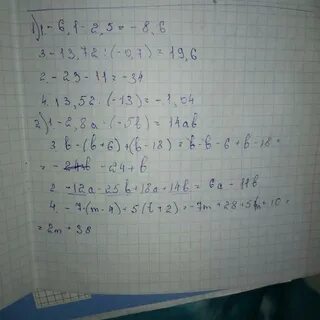 1) 1. -6,1-2,5=-8,6
3 -13,72:(-0,7)=19,6
2 -23-11=-34
4. 13,52:(-13)=-1,04
2) 1 -2,8a·(-5b)=14ab
3 b-(b+6)+(b-18)=b-b-6+b-18=
= -24+b
2. -12a-25b+18a+14b=6a-11b
4. -7(m-4)+5(b+2)=-7m+28+5m+10=
=2m+38